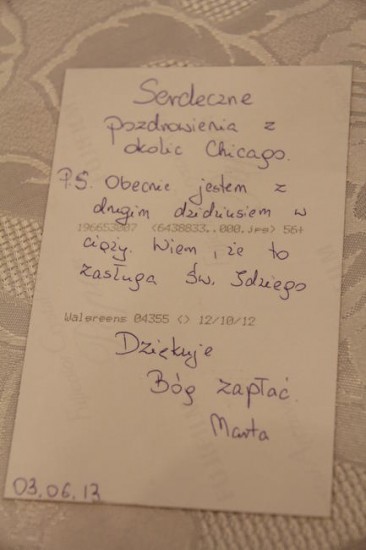 Serdeczne
pozdrowienia z
okolic Chicago.
P.S. Obecnie jestem z
drugim dzidziusiem w
196653007 (6438833..000.jpg) 56+
ciąży. Wiem, że to
zasługa Św. Idziego
Walgreens 04355 <> 12/10/12
Dziękuję
Bóg zapłać.
Marta
03.06.13